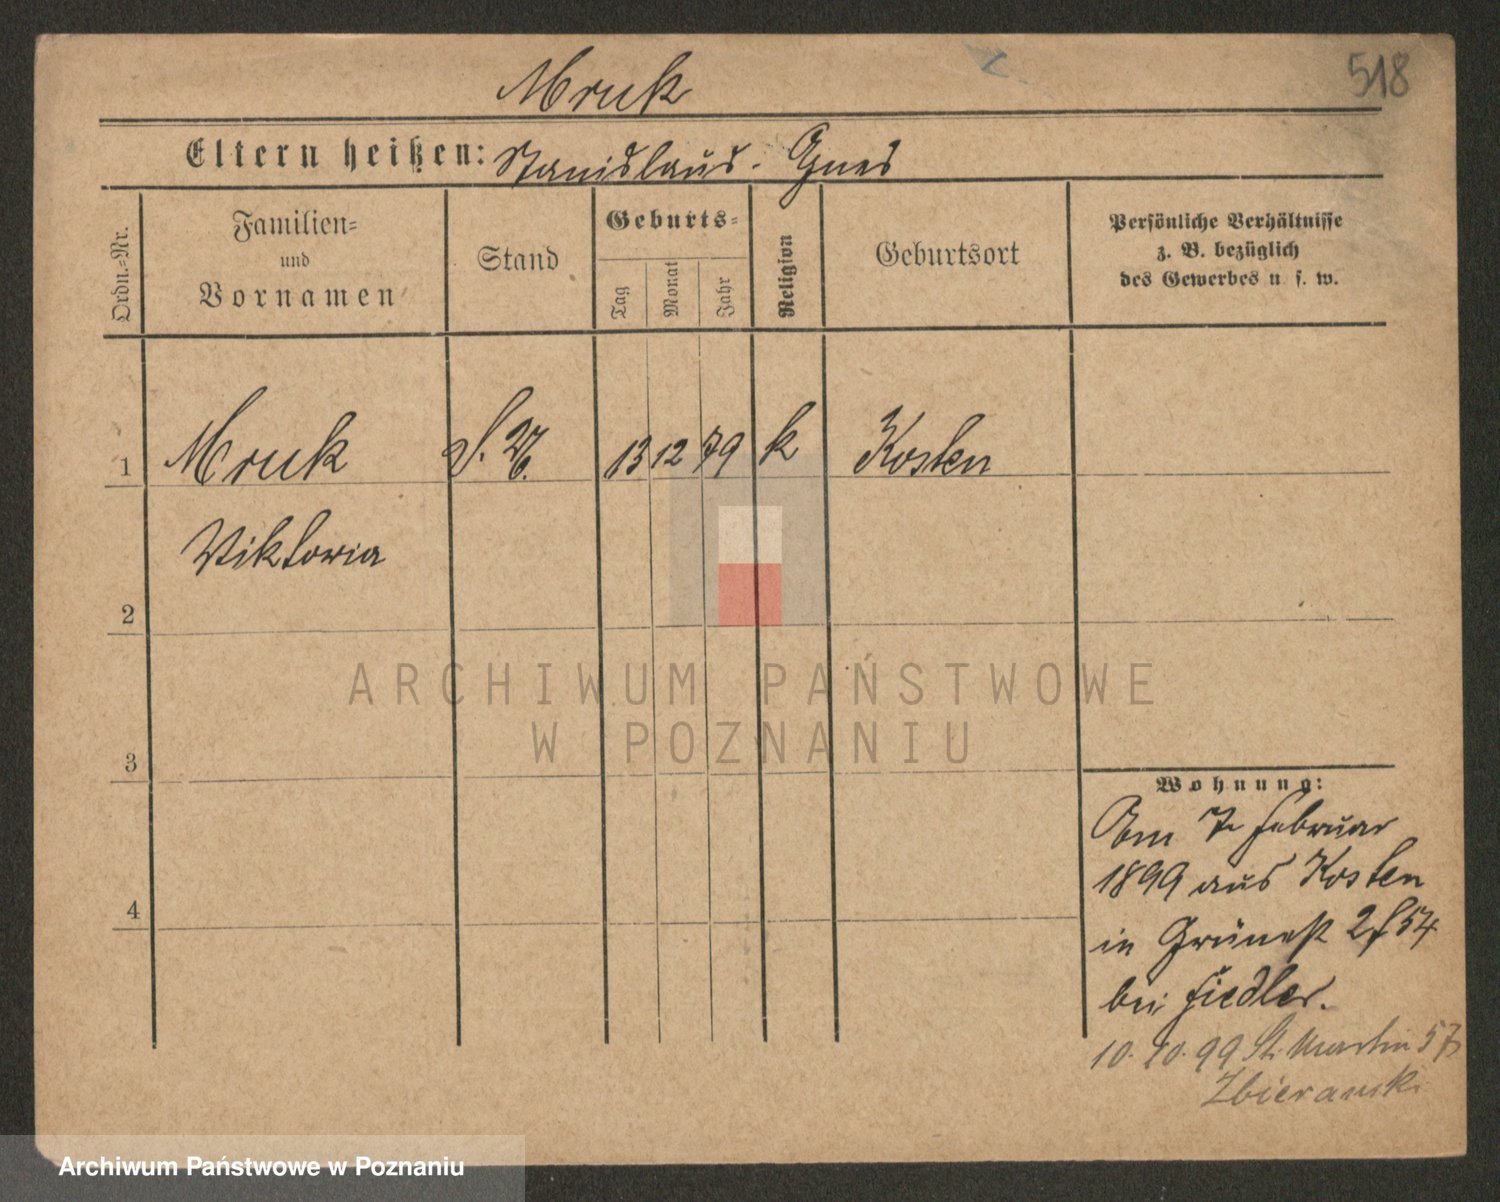 518
Mruk
Eltern heißen: Stanislaus. Agnes
Ordn.=Nr.
Familien=
und
Vornamen
Stand
Geburts=
Tag
Monat
Jahr
Religion
Geburtsort
Persönliche Verhältnisse
z. B. bezüglich
des Gewerbes u. s. w.
1 Mruk 13 12 79 k Kosten
Viktoria
2
3
4
Wohnung:
Am 7. Februar
1899 aus Kosten
in Grünest 2 f 54
bei Fiedler.
10. 10. 99 St. Martin 57
Zbieranski
ARCHIWUM PAŃSTWOWE
W POZNANIU
Archiwum Państwowe w Poznaniu